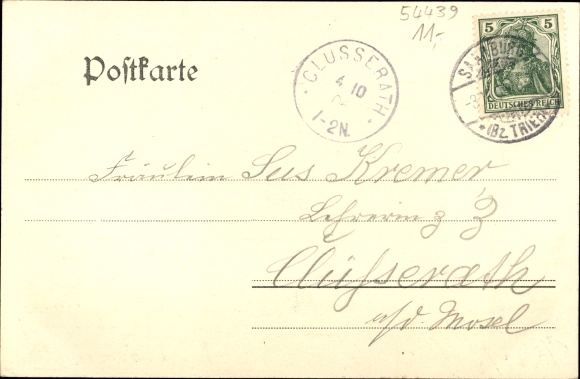 54439
11,-
5 5
DEUTSCHES REICH
SAARBURG
*(BZ. TRIER)
CLÜSSERATH
4 10
1-2N.
Postkarte
Fräulein Sus Kremer
Lehrerin z Z
Clüsserath
a/d. Mosel